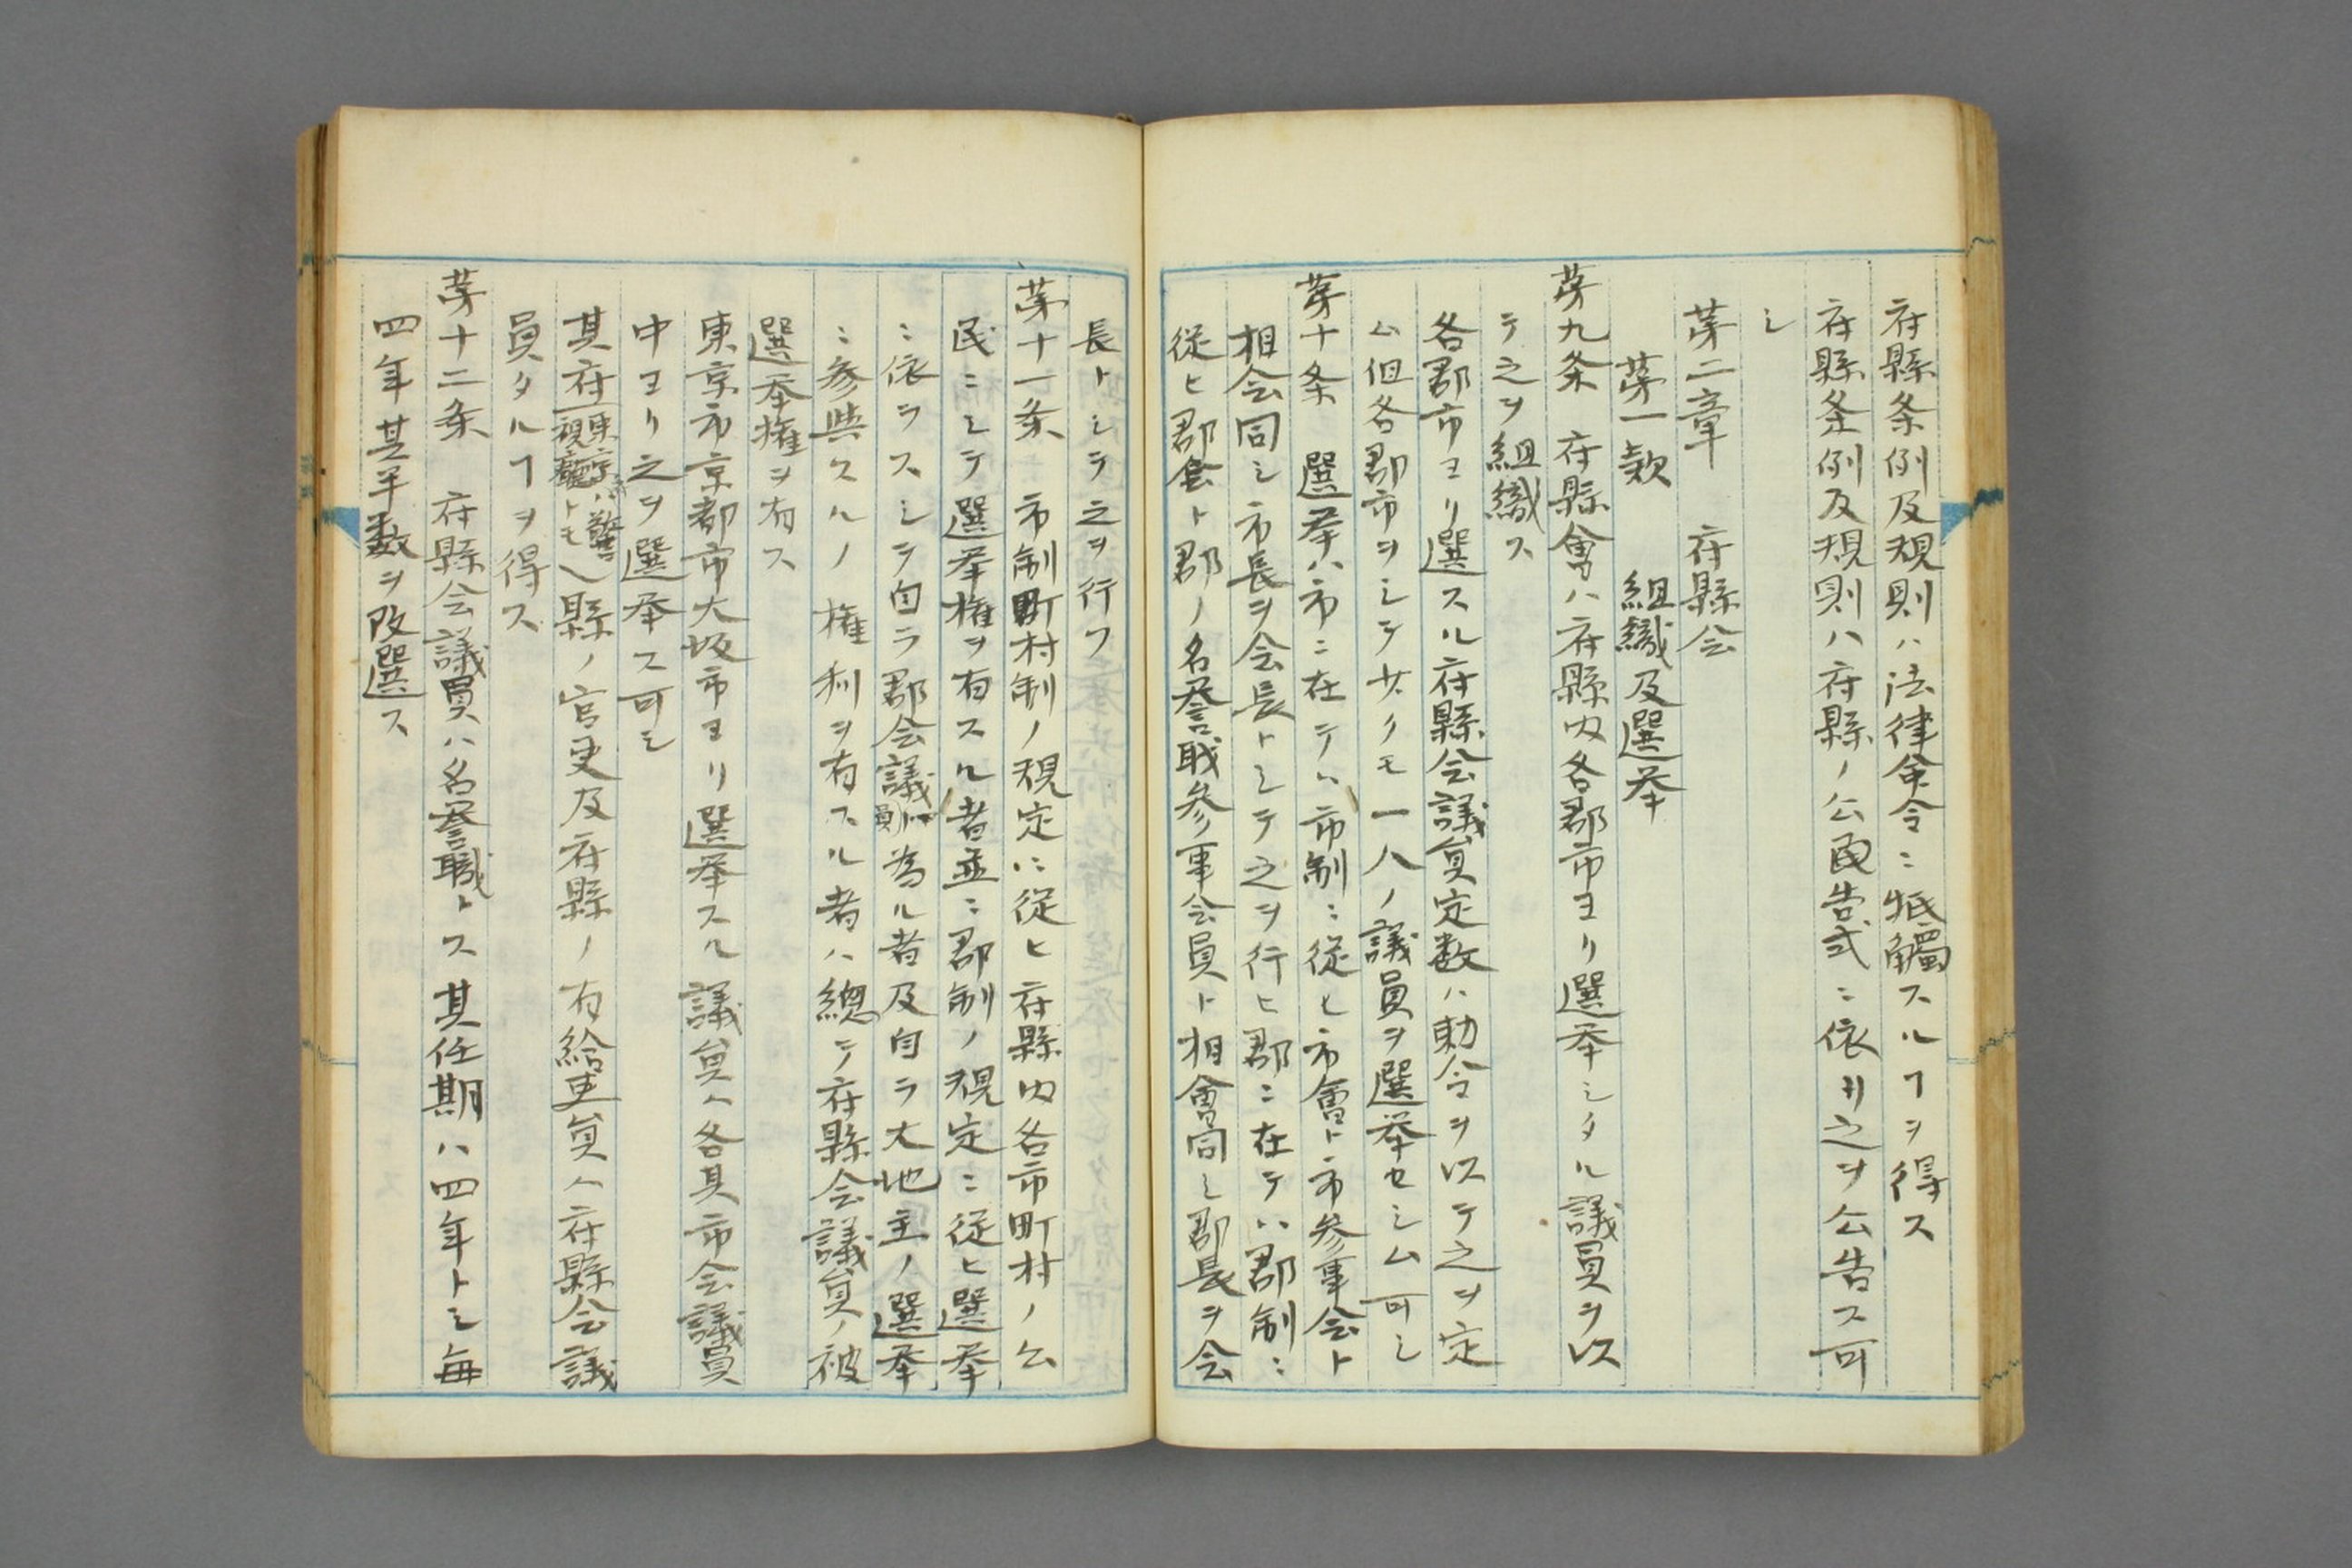 府縣条例及規則ハ法律命令ニ牴觸スルヿヲ得ス
府縣条例及規則ハ府縣ノ公式ニ依リ之ヲ公告ス可
シ
第二章 府縣会
第一款 組織及選挙
第九条 府縣會ハ府縣内各郡市ヨリ選挙シタル議員ヲ以
テ之ヲ組織ス
各郡市ヨリ選スル府縣会議員定数ハ勅令ヲ以テ之ヲ定
ム但各郡市ヲシテ少クモ一人ノ議員ヲ選挙セシム可シ
第十条 選挙ハ市ニ在テハ市制ニ従ヒ市會ト市参事会ト
相会同シ市長ヲ会長トシテ之ヲ行ヒ郡ニ在テハ郡制ニ
従ヒ郡会ト郡ノ名誉職参事会員ト相會同シ郡長ヲ会
長トシテ之ヲ行フ
第十一条 市制町村制ノ規定ニ従ヒ府縣内各市町村ノ公
民ニシテ選挙権ヲ有スル者並ニ郡制ノ規定ニ従ヒ選挙
ニ依ラスシテ自ラ郡会議員為ル者及自ラ大地主ノ選挙
ニ参與スルノ権利ヲ有スル者ハ總テ府縣会議員ノ被
選挙権ヲ有ス
東京市京都市大坂市ヨリ選挙スル議員ハ各其市会議員
中ヨリ之ヲ選挙ス可シ
其府東京ハ警視廳トモ縣ノ官吏及府縣ノ有給吏員ハ府縣会議
員タルヿヲ得ス
第十二条 府縣会議員ハ名誉職トス其任期ハ四年トシ毎
四年其半数ヲ改選ス